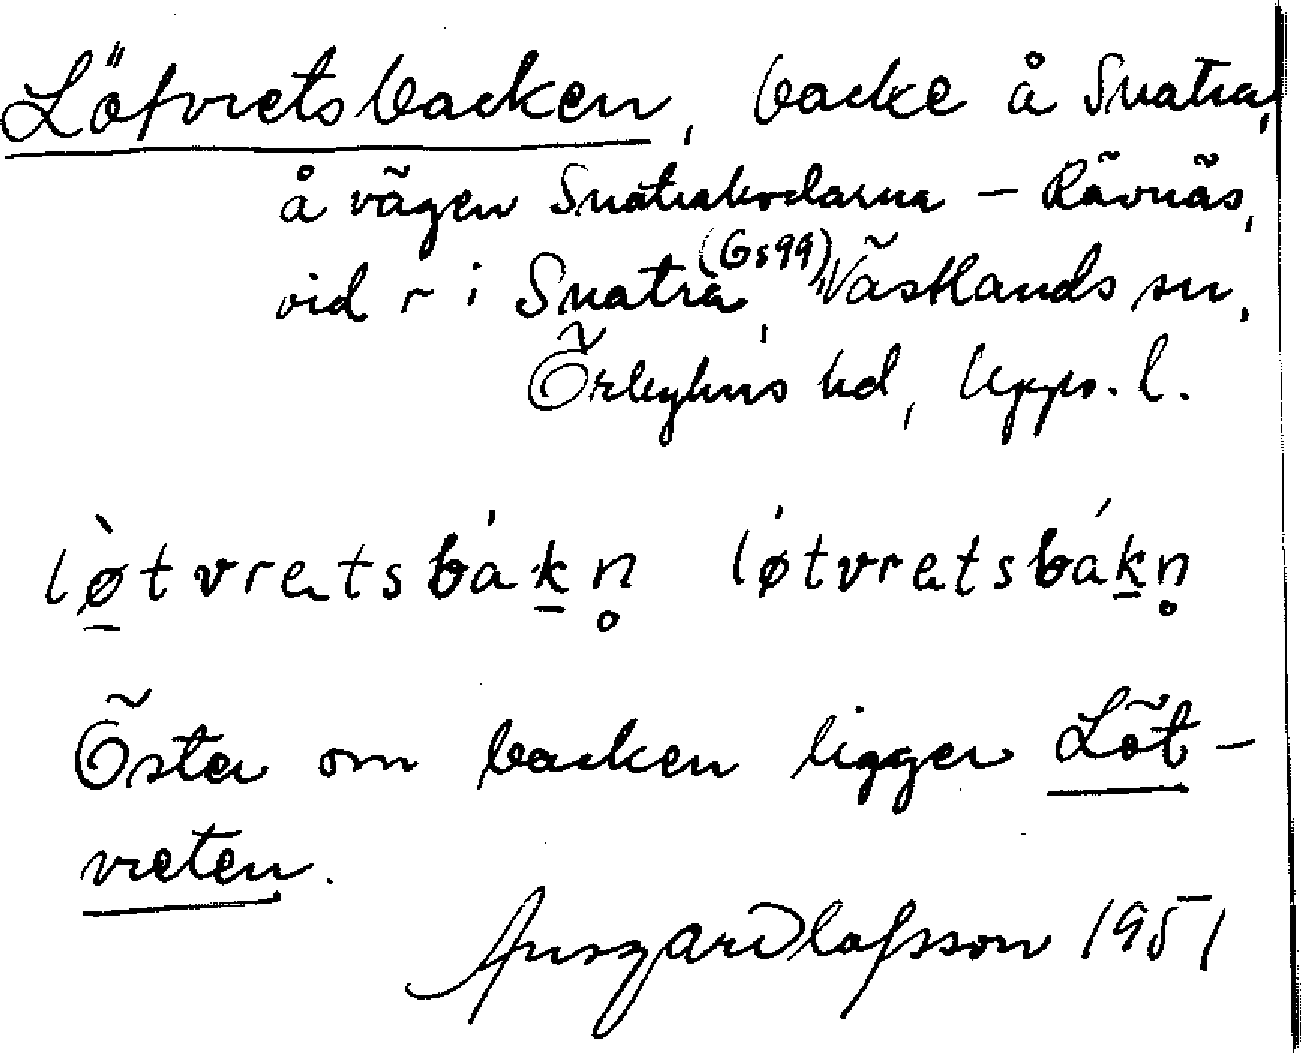 Lötvretsbacken, backe å Snatra,
å vägen Snatrabodarna – Rävnäs,
vid r i Snatra (Gs99), Västlands sn,
Örbyhus hd, Upps. l.
lø̀tvretsbákn̥ løtvretsbákn̥
Öster om backen ligger Löt-
vreten.
Ansgar Olofsson 1951